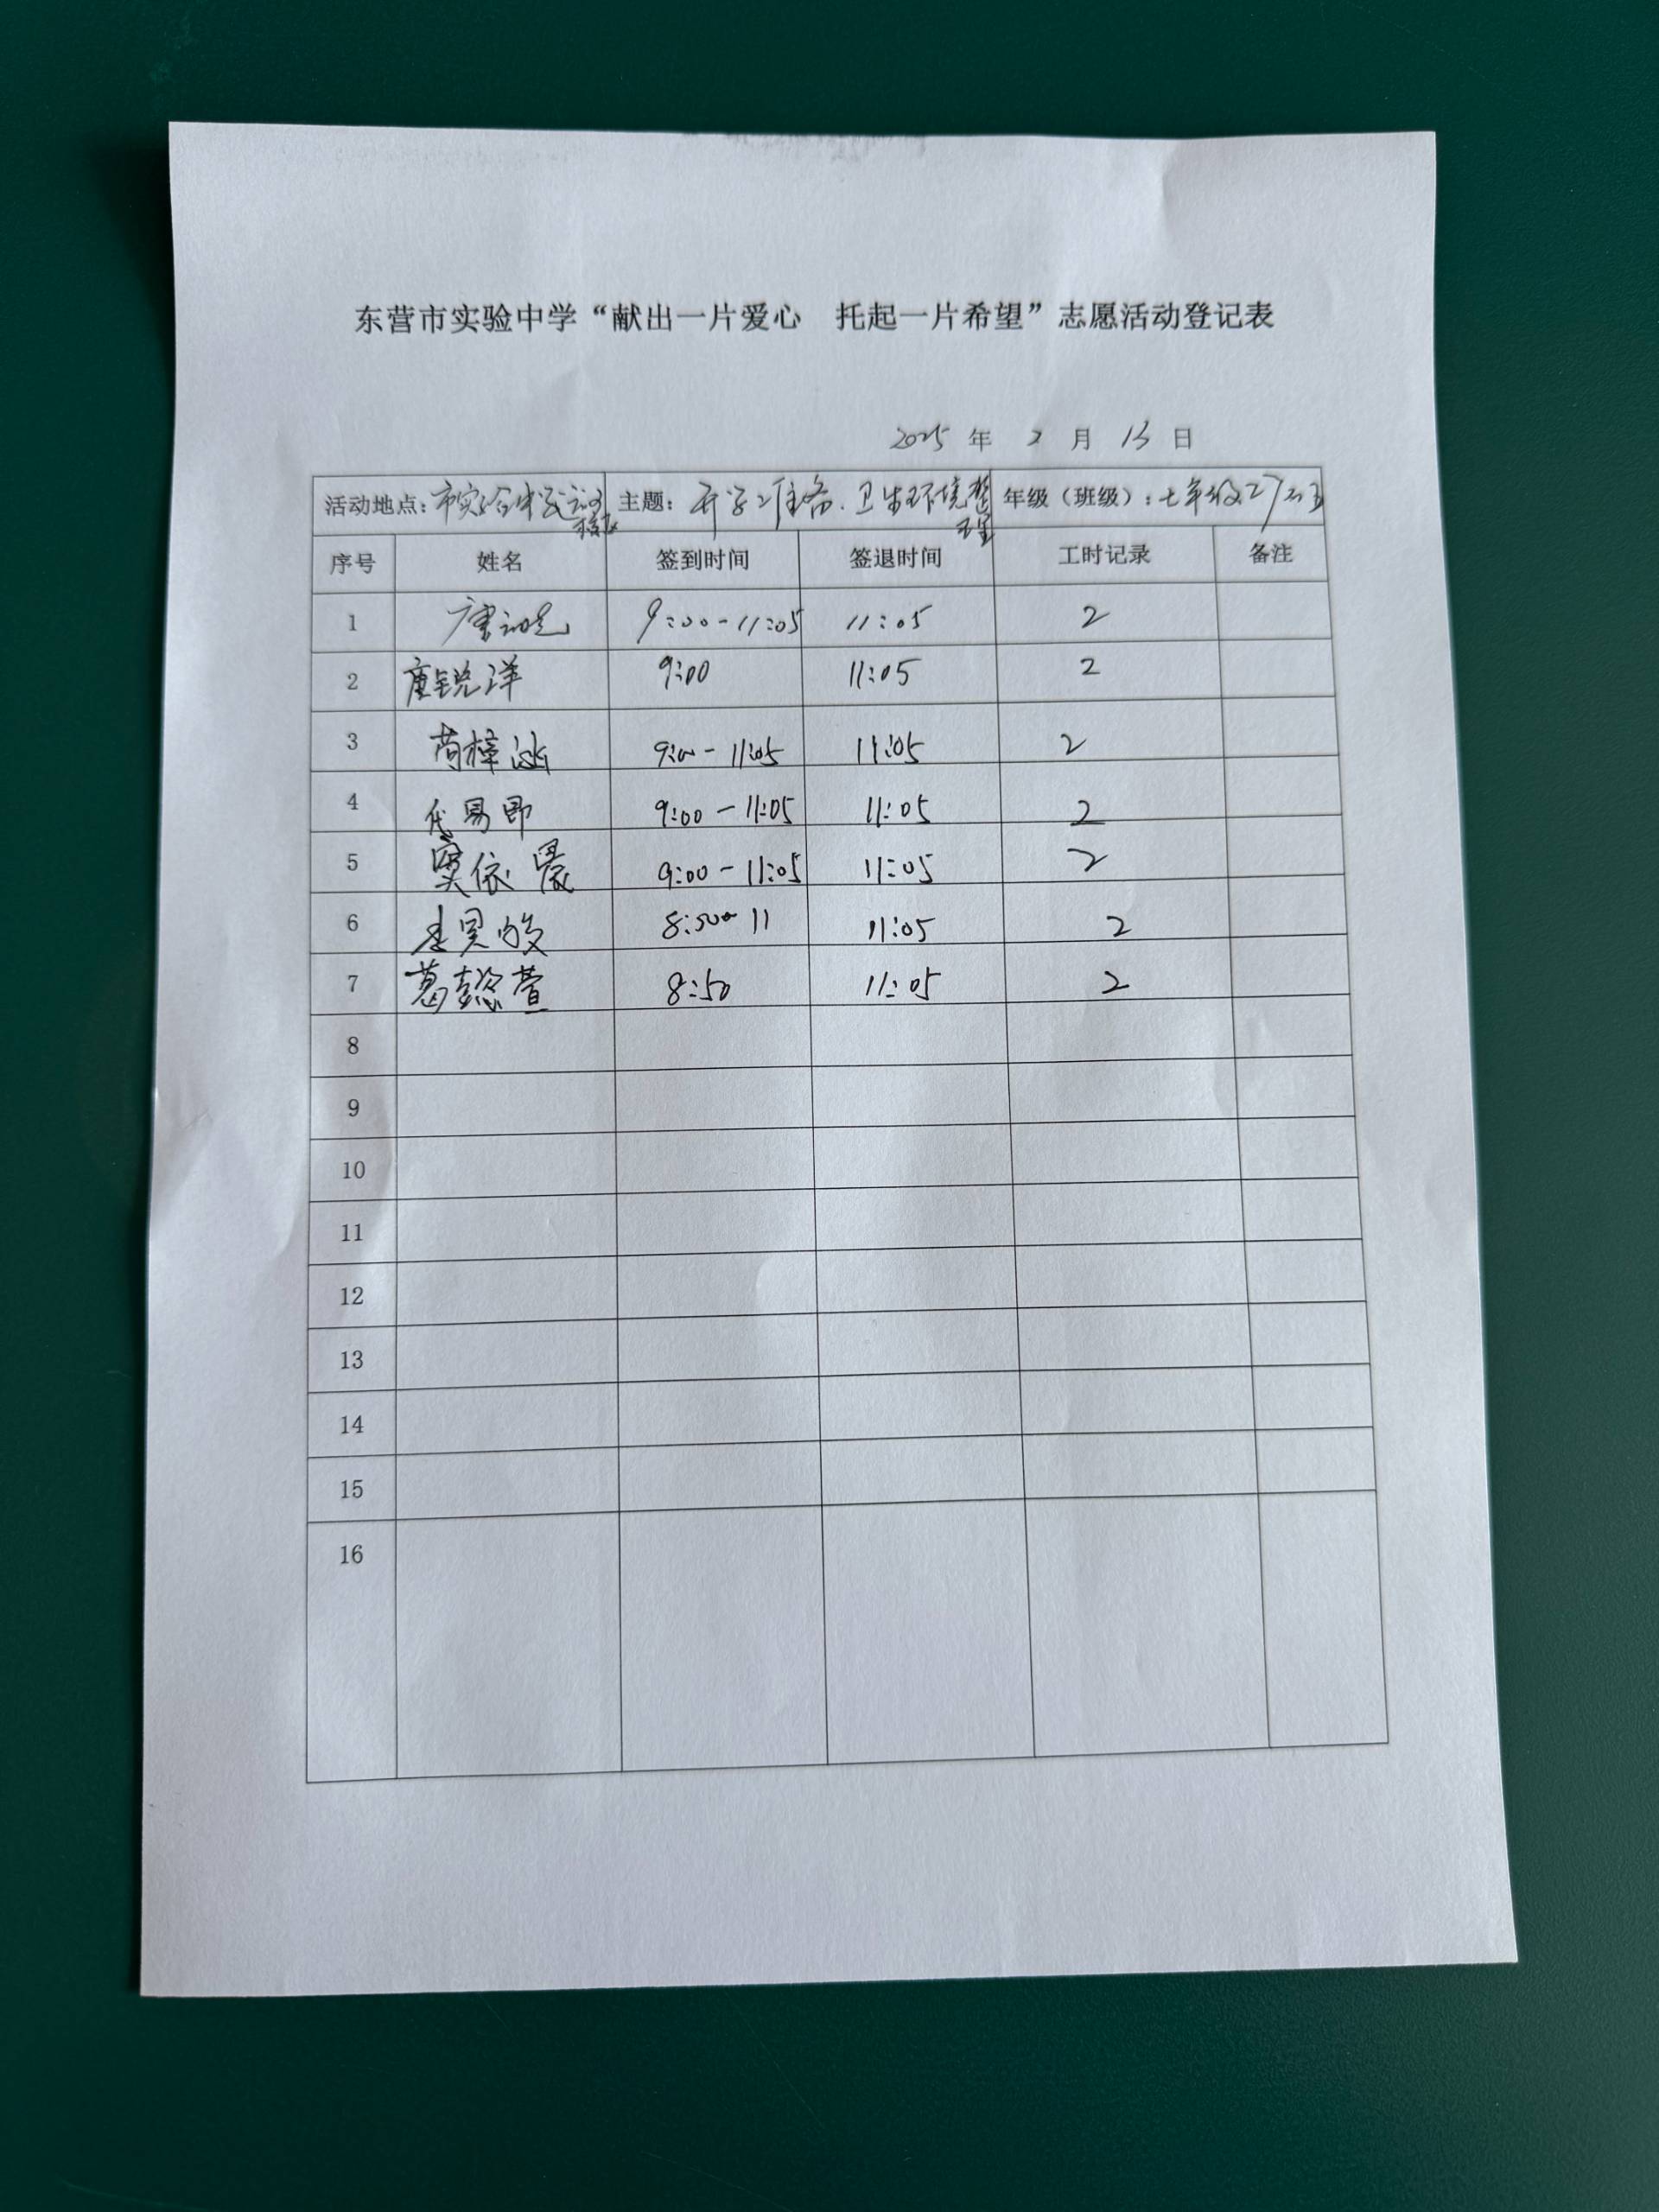 东营市实验中学“献出一片爱心 托起一片希望”志愿活动登记表
2025 年 2 月 13 日
活动地点：市实验中学 主题：开学准备.卫生环境整理 年级（班级）：七年级27班
序号 姓名 签到时间 签退时间 工时记录 备注
1 9:00-11:05 11:05 2
2 唐锐洋 9:00 11:05 2
3 苟梓涵 9:00-11:05 11:05 2
4 代易 9:00-11:05 11:05 2
5 窦依 9:00-11:05 11:05 2
6 8:50-11 11:05 2
7 葛懿萱 8:50 11:05 2
8
9
10
11
12
13
14
15
16